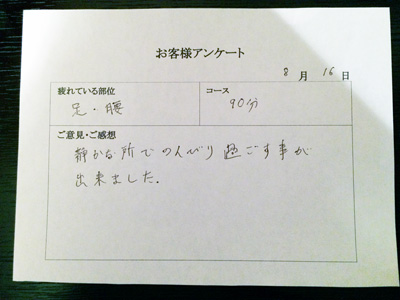 お客様アンケート
8月16日
疲れている部位
コース
足・腰
90分
ご意見・ご感想
静かな所でのんびり過ごす事が
出来ました.